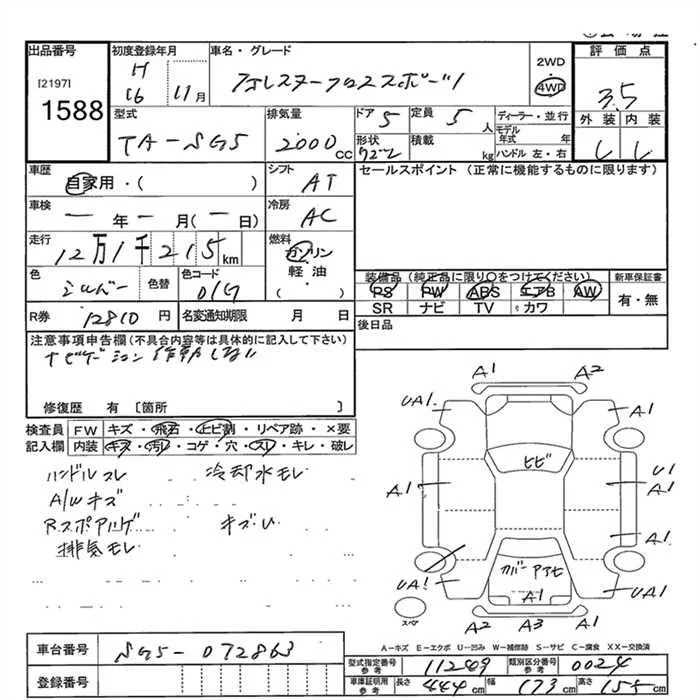 出品番号
[2197]
1588
初度登録年月
H
16 11月
車名・グレード
フォレスタークロススポーツ
2WD
4WD
評価点
3.5
型式
TA-SG5
排気量
2000 CC
ドア 5
形状
ワゴン
定員 5 人
積載 kg
ディーラー・並行
モデル年式 年
ハンドル 左・右
外装 内装
車歴
自家用・( )
シフト
AT
セールスポイント (正常に機能するものに限ります)
車検
一年一月(一日)
冷房
AC
走行
12万1千215km
燃料
ガソリン
軽油
( )
色
シルバー
色替
色コード
01G
装備品(純正品に限り○をつけてください)
PS PW ABS エアB AW
SR ナビ TV カワ
新車保証書
有・無
R券 12810円
名変通知期限 月 日
後日品
注意事項申告欄(不具合内容等は具体的に記入して下さい)
ナビゲーション作動しない
修復歴 有 〔箇所 〕
検査員 FW キズ・飛石・上ビ割・リペア跡・×要
記入欄 内装 キズ・汚レ・コゲ・穴・スレ・キレ・破レ
ハンドルスレ 冷却水モレ
A/Wキズ
排気モレ
A1 A2
UA1 A1
ヒビ
A1 U1
A1
A1
カバー
A1
UA1 UA1
スペア
A2 A3 A1
A-キズ E-エクボ U-凹み W-補修跡 S-サビ C-腐食 XX-交換済
車台番号 SG5-072863
登録番号
型式指定番号 参考 11249
類別区分番号 参考 0024
車庫証明用 参考 長さ 444cm 幅 173cm 高さ 155cm